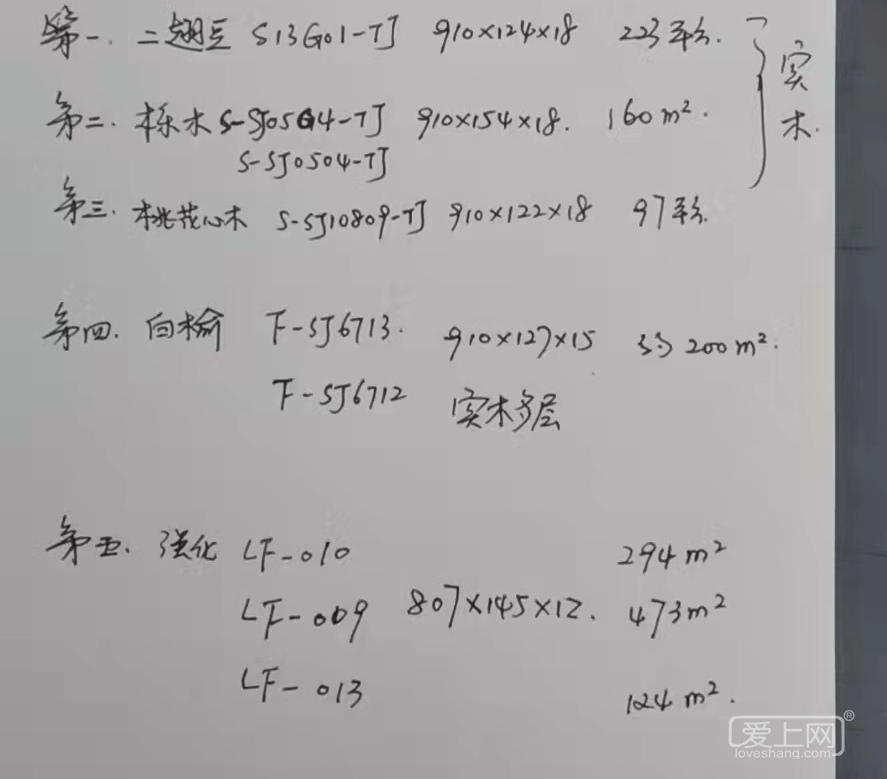 第一. 二翅豆 S13G01-TJ 910×124×18 223平方.
第二. 栎木 S-SJ05G4-TJ 910×154×18. 160m².
S-SJ0504-TJ
第三. 桃花心木 S-SJ10809-TJ 910×122×18 97平方.
实木.
第四. 白榆 F-SJ6713. 910×127×15 200m².
F-SJ6712 实木多层
第五. 强化 LF-010 294m²
LF-009 807×145×12. 473m²
LF-013 124m².
爱上网®
loveshang.com